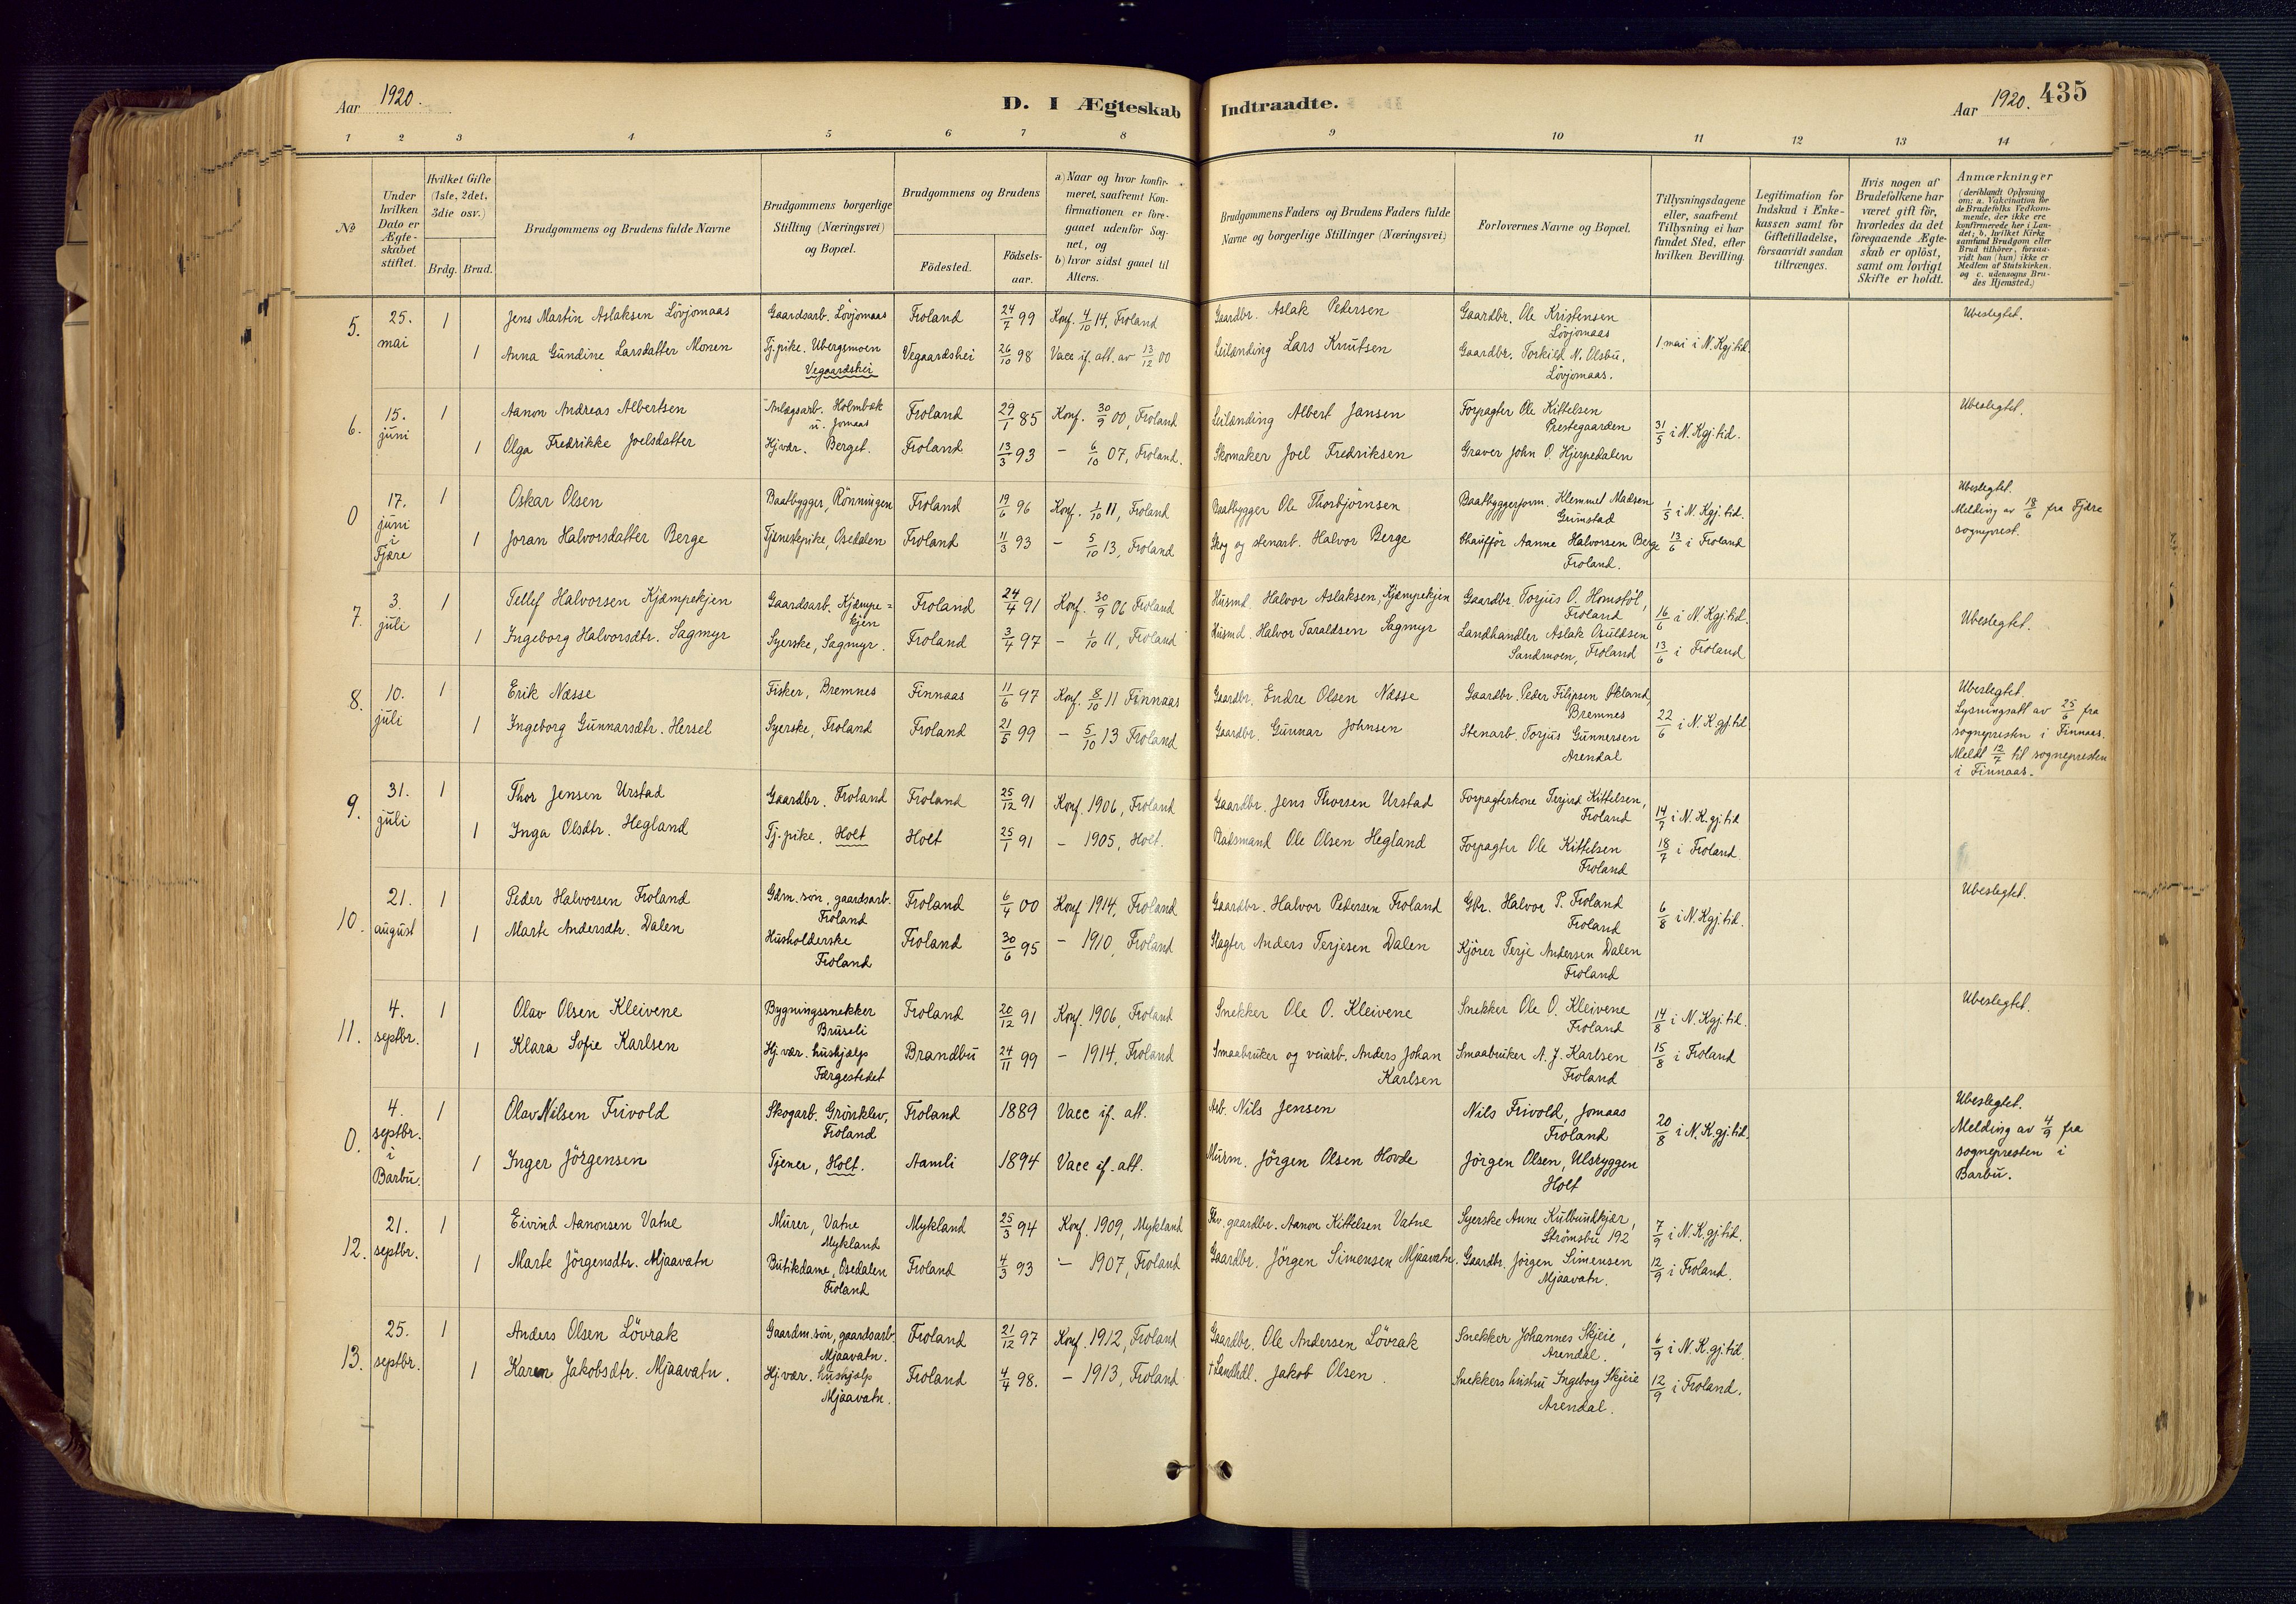 Aar 1920.
D. I Ægteskab Indtraadte.
Aar 1920. 435
1 2 3 4 5 6 7 8 9 10 11 12 13 14
№
Under hvilken Dato er Ægteskabet stiftet.
Hvilket Gifte (1ste, 2det, 3die osv.)
Brdg. Brud.
Brudgommens og Brudens fulde Navne
Brudgommens borgerlige Stilling (Næringsvei) og Bopæl.
Brudgommens og Brudens
Födested. Födsels-aar.
a) Naar og hvor konfirmeret, saafremt Konfirmationen er foregaaet udenfor Sognet, og
b) hvor sidst gaaet til Alters.
Brudgommens Faders og Brudens Faders fulde Navne og borgerlige Stillinger (Næringsvei)
Forlovernes Navne og Bopæl.
Tillysningsdagene eller, saafremt Tillysning ei har fundet Sted, efter hvilken Bevilling.
Legitimation for Indskud i Enkekassen samt for Giftetilladelse, forsaavidt saadan tiltrænges.
Hvis nogen af Brudefolkene har været gift för, hvorledes da det foregaaende Ægteskab er oplöst, samt om lovligt Skifte er holdt.
Anmærkninger
(deriblandt Oplysning om: a. Vakcination for de Brudefolks Vedkommende, der ikke ere konfirmerede her i Landet; b. hvilket Kirkesamfund Brudgom eller Brud tilhörer, forsaavidt han (hun) ikke er Medlem af Statskirken, og c. udensogns Brudes Hjemsted.)
5. 25. mai 1 Jens Martin Aslaksen Lövjomaas Gaardsarb. Lövjomaas Froland 24/7 99 Konf. 4/10 14, Froland Gaardbr. Aslak Pedersen Gaardbr. Ole Kristensen Lövjomaas 1 mai i N. Kgj.tid Ubeslegtet.
1 Anna Gundine Larsdatter Monen Tj.pike. Ubergsmoen Vegaardshei Vegaardshei 26/10 98 Vacc if. att. av 13/12 00 Leilænding Lars Knutsen Gaardbr. Torkild N. Olsbu, Lövjomaas.
6. 15. juni 1 Aanon Andreas Albertsen Anlægsarb. Holmbæk u. Jomaas Froland 29/1 85 Konf. 30/9 00, Froland Leilænding Albert Jansen Forpagter Ole Kittelsen Prestegaarden 31/5 i N. Kgj.tid. Ubeslegtet.
1 Olga Fredrikke Joelsdatter Hj.vær. Berget. Froland 13/3 93 – 6/10 07, Froland. Skomaker Joel Fredriksen Graver John O. Hjerpedalen
0 17. juni i Fjære 1 Oskar Olsen Baatbygger, Rönningen Froland 19/6 96 Konf. 1/10 11, Froland Baatbygger Ole Thorbjörnsen Baatbyggerform. Klemmet Madsen Grimstad 1/5 i N. Kgj.tid. Ubeslegtet. Melding av 18/6 fra Fjære sogneprest.
1 Joran Halvorsdatter Berge Tjenestepike, Osedalen Froland 11/3 93 – 5/10 13, Froland Skog og stenarb. Halvor Berge Chaufför Aanne Halvorsen Berge Froland. 13/6 i Froland
7. 3. juli 1 Tellef Halvorsen Kjæmpekjen Gaardsarb. Kjæmpe=kjen Froland 24/4 91 Konf. 30/9 06 Froland Husmd. Halvor Aslaksen, Kjæmpekjen Gaardbr. Torjus O. Homstöl, Froland 16/6 i N. Kgj.tid. Ubeslegtet.
1 Ingeborg Halvorsdtr. Sagmyr Syerske, Sagmyr. Froland 3/4 97 – 1/10 11, Froland Husmd. Halvor Taraldsen Sagmyr Landhandler Aslak Osuldsen Sandmoen, Froland 13/6 i Froland
8. 10. juli 1 Erik Næsse Fisker, Bremnes Finnaas 11/6 97 Konf. 8/10 11 Finnaas Gaardbr. Endre Olsen Næsse Gaardbr. Peder Filipsen Økland, Bremnes 22/6 i N. K.gj.tid Ubeslegtet. Lysningsatt av 25/6 fra sognepresten i Finnaas. Meldt 12/7 til sognepresten i Finnaas.
1 Ingeborg Gunnarsdtr. Hersel Syerske, Froland Froland 21/5 99 – 5/10 13 Froland Gaardbr. Gunnar Johnsen Stenarb. Torjus Gunnersen Arendal
9. 31. juli 1 Thor Jensen Urstad Gaardbr. Froland Froland 25/12 91 Konf. 1906, Froland Gaardbr. Jens Thorsen Urstad Forpagterkone Terjird Kittelsen, Froland 14/7 i N. K.gj.tid
1 Inga Olsdtr. Hegland Tj.pike. Holt Holt 25/1 91 – 1905, Holt. Baadsmand Ole Olsen Hegland Forpagter Ole Kittelsen Froland 18/7 i Froland.
10. 21. august 1 Peder Halvorsen Froland Gdm.sön, gaardsarb. Froland Froland 6/4 00 Konf 1914, Froland Gaardbr. Halvor Pedersen Froland Gbr. Halvor P. Froland Froland 6/8 i N. Kgj.tid. Ubeslegtet.
1 Marte Andersdtr. Dalen Husholderske Froland Froland 30/6 95 – 1910, Froland Slagter Anders Terjesen Dalen Kjörer Terje Andersen Dalen Froland
11. 4. septbr. 1 Olav Olsen Kleivene Bygningssnekker Bruseli Froland 20/12 91 Konf. 1906, Froland Snekker Ole O. Kleivene Snekker Ole O. Kleivene Froland 14/8 i N. Kgj.tid. Ubeslegtet.
1 Klara Sofie Karlsen Hj.vær. hushjælp Færgestedet Brandbu 24/11 99 – 1914, Froland Smaabruker og veiarb. Anders Johan Karlsen Smaabruker A. J. Karlsen Froland 15/8 i Froland
0. 4. septbr. i Barbu. 1 Olav Nilsen Frivold Skogarb. Grönklev, Froland Froland 1889 Vacc if. att. Arb. Nils Jensen Nils Frivold, Jomaas Froland 20/8 i N. K.gj.tid. Ubeslegtet. Melding av 4/9 fra sognepresten i Barbu.
1 Inger Jörgensen Tjener, Holt. Aamli 1894 Vacc if. att. Murm. Jörgen Olsen Hovde Jörgen Olsen, Ulsryggen Holt
12. 21. septbr. 1 Eivind Aanonsen Vatne Murer, Vatne Mykland Mykland 25/3 94 Konf. 1909, Mykland gaardbr. Aanon Kittelsen Vatne Syerske Anne Kulbundkjær, Strömsbu 192 7/9 i N. K.gj.tid.
1 Marte Jörgensdtr. Mjaavatn Butikdame, Osedalen Froland Froland 4/3 93 – 1907, Froland Gaardbr. Jörgen Simensen Mjaavatn. Gaardbr. Jörgen Simensen Mjaavatn. 12/9 i Froland.
13. 25. septbr. 1 Anders Olsen Lövrak Gaardm.sön, gaardsarb Mjaavatn. Froland 21/12 97 Konf. 1912, Froland Gaardbr. Ole Andersen Lövrak Snekker Johannes Skjeie, Arendal. 6/9 i N. K.gj.tid.
1 Karen Jakobsdtr. Mjaavatn. Hj.vær. hushjælp Mjaavatn. Froland 4/4 98. – 1913, Froland † Landhdl. Jakob Olsen. Snekkers hustru Ingeborg Skjeie Arendal. 12/9 i Froland.